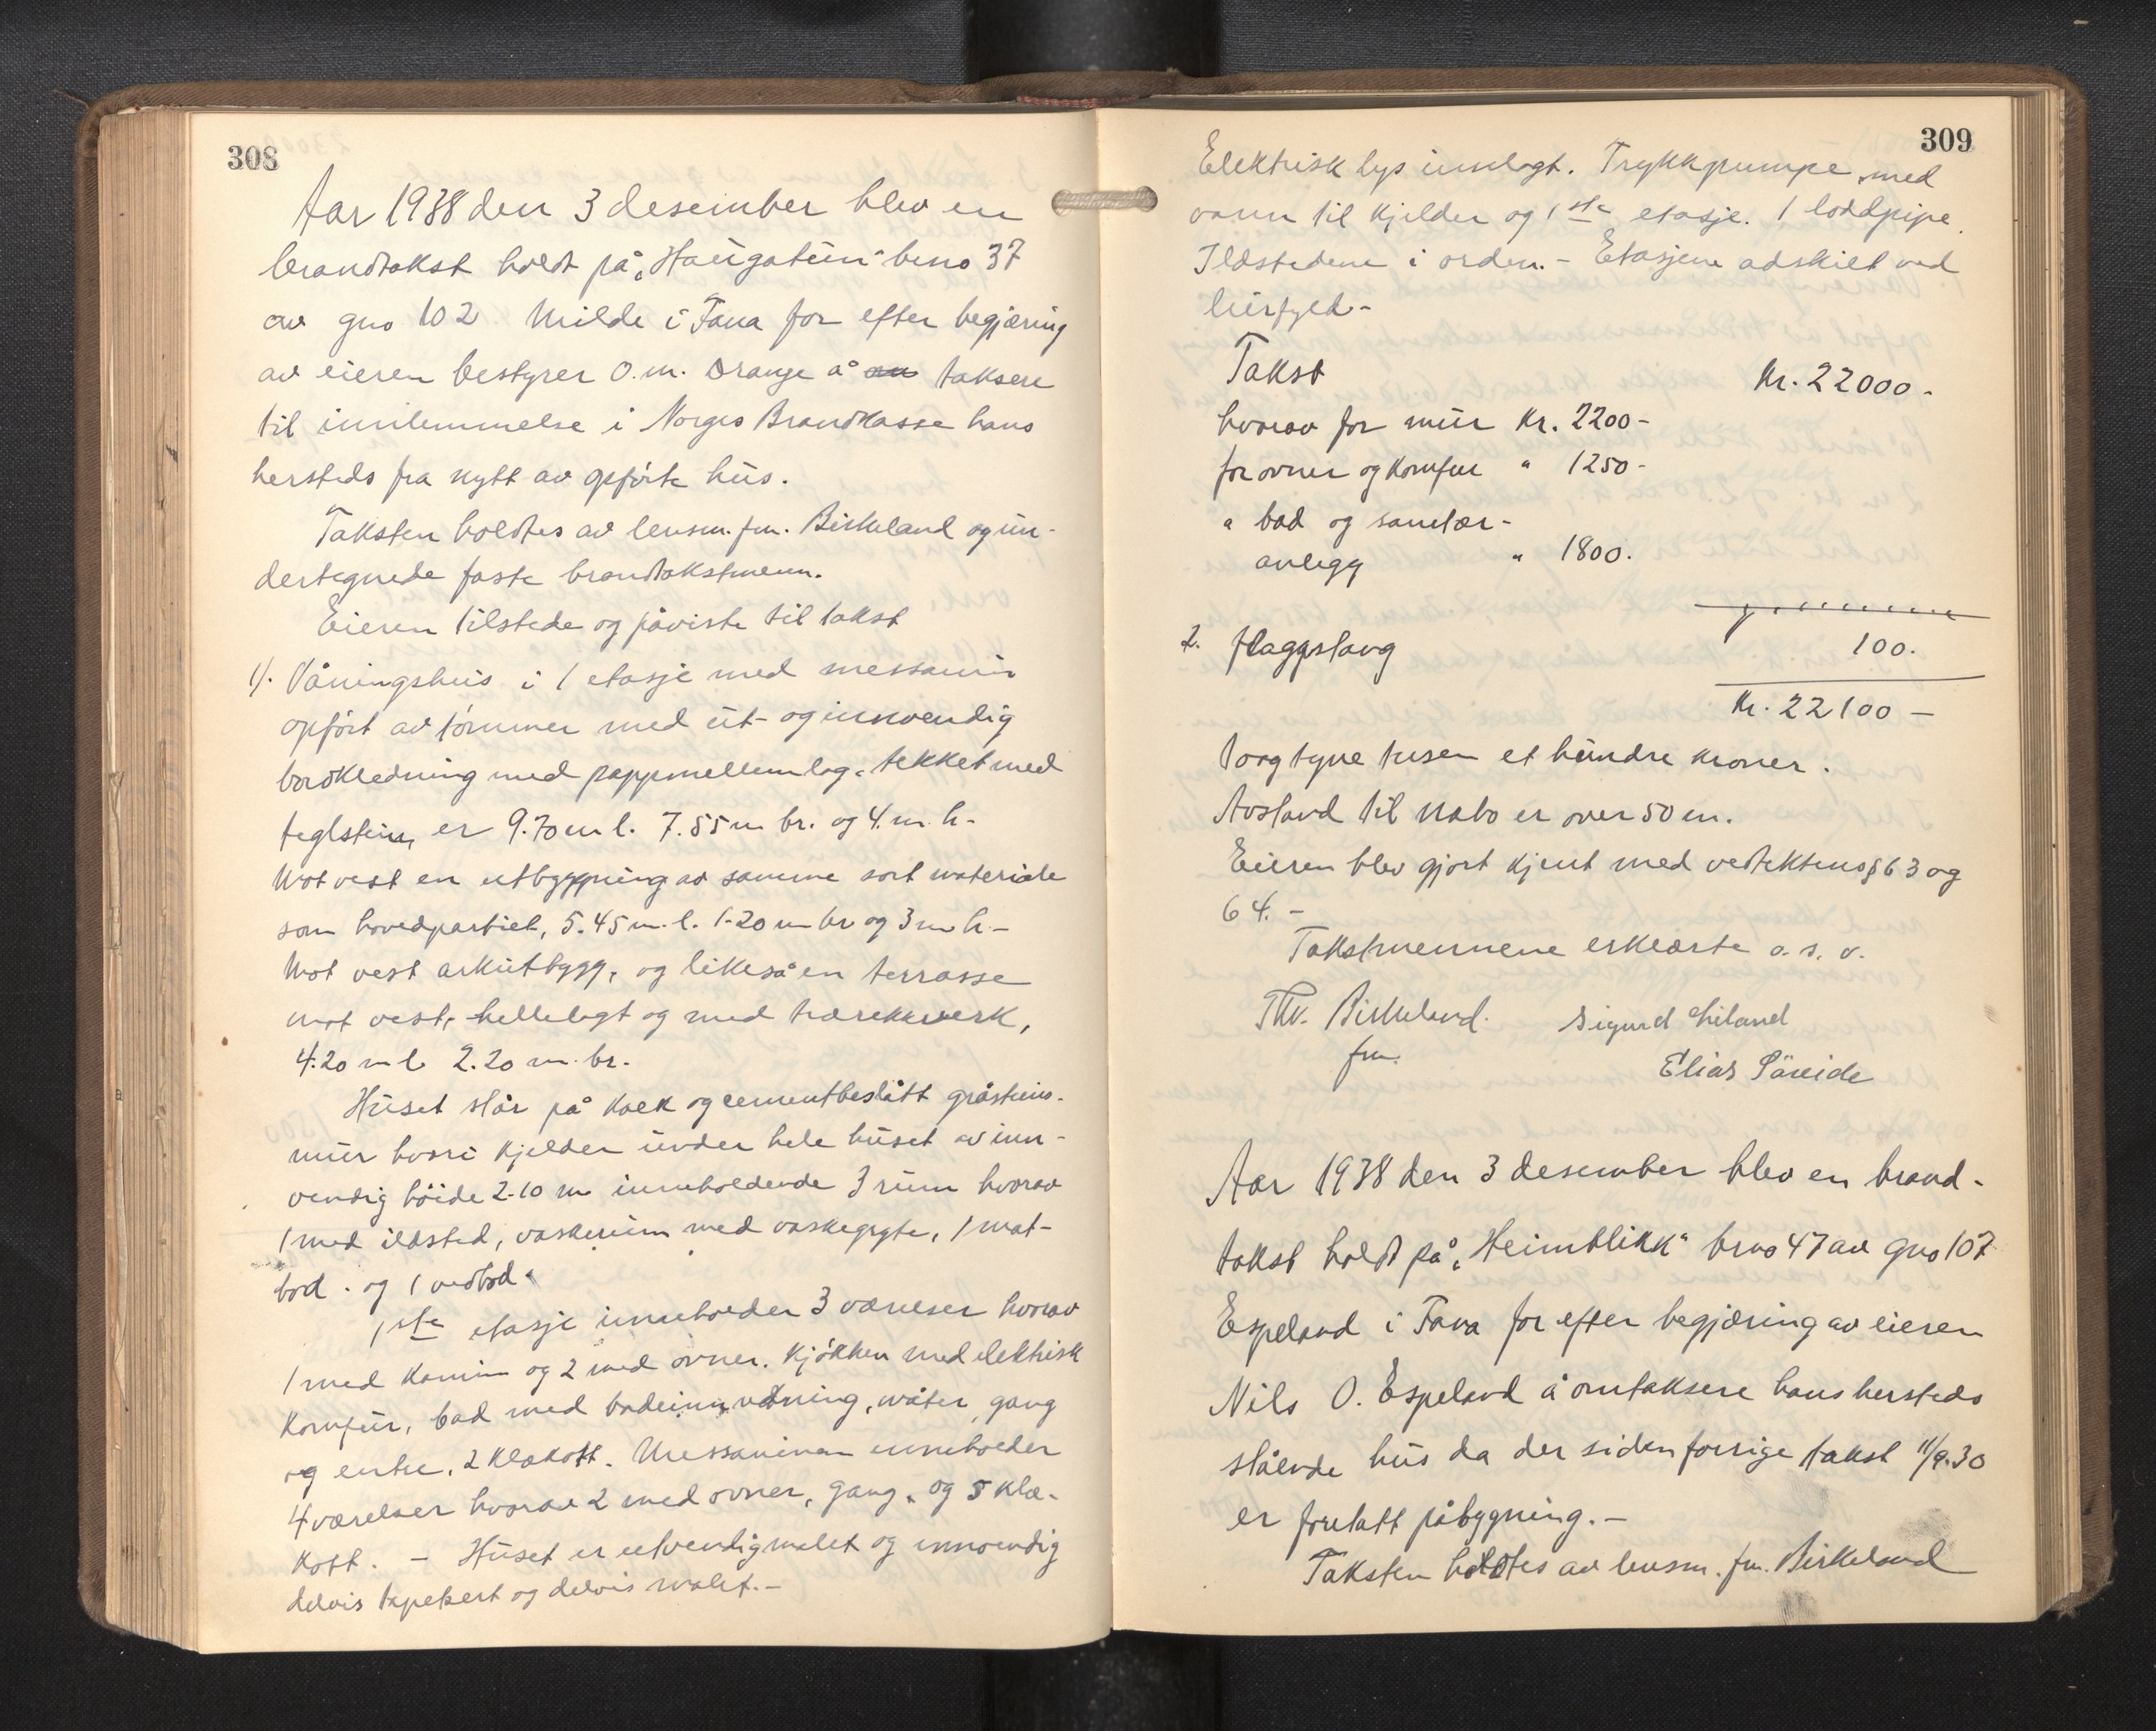 308
Aar 1938 den 3 desember blev en
brandtakst holdt på „Haugatun“ bno 37
av gno 102 Milde i Fana for efter begjæring
av eieren bestyrer O. M. Drange å taksere
til innlemmelse i Norges Brandkasse hans
hersteds fra nytt av opførte hus.
Taksten holdtes av lensm. fm. Birkeland og un-
dertegnede faste brandtakstmenn.
Eieren tilstede og påviste til takst
1). Våningshus i 1 etasje med messanin
opført av tømmer med ut- og innvendig
bordkledning med pappmellemlag, tekket med
teglstein, er 9.70 m l. 7.55 m br. og 4. m. h.
Mot vest en utbyggning av samme sort materiale
som hovedpartiet, 5.45 m. l. 1.20 m br og 3 m h. -
Mot vest arkutbygg, og likeså en terrasse
mot vest, hellelagt og med trærekkverk,
4.20 m l 2.20 m. br.
Huset står på kalk og cementbeslått gråsteins-
mur hvori kjelder under hele huset av inn-
vendig høide 2.10 m inneholdende 3 rum hvorav
1 med ildsted, vaskerum med vaskegryte, 1 mat-
bod. og 1 vedbod.
1ste etasje inneholder 3 værelser hvorav
1 med kamin og 2 med ovner. Kjøkken med elektrisk
komfur, bad med badeinnredning, water, gang
og entre, 2 klækott. Messaninen inneholder
4 værelser hvorav 2 med ovner, gang, og 5 klæ-
kott. - Huset er utvendig malet og innvendig
delvis tapetsert og delvis malet. -
309
Elektrisk lys innlagt. Trykkpumpe med
vann til kjelder og 1ste etasje. 1 loddpipe.
Ildstedene i orden. - Etasjene adskilt ved
leirfyld -
Takst Kr. 22000 -
hvorav for mur Kr. 2200 -
for ovner og komfur " 1250 -
" bad og sanitær-
anlegg " 1800.
2. Flaggstang 100.
Kr. 22100 -
toogtyve tusen et hundre kroner.
Avstand til nabo er over 50 m.
Eieren blev gjort kjent med vedtektens § 63 og
64. -
Takstmennene erklærte o. s. v.
Thv. Birkeland. Sigurd Liland
fm.
Elias Søreide
Aar 1938 den 3 desember blev en brand-
takst holdt på „Heimblikk“ bno 47 av gno 107
Espeland i Fana for efter begjæring av eieren
Nils O. Espeland å omtaksere hans hersteds
stående hus da der siden forrige takst 11/9.30
er foretatt påbygning. -
Taksten holdtes av lensm. fm. Birkeland